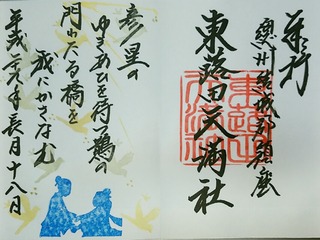 奉拝
東蕗田天満社
彦星の
ゆきあひを待つ鵲の
門わたる橋を
我にかさなむ
平成二九年長月十八日